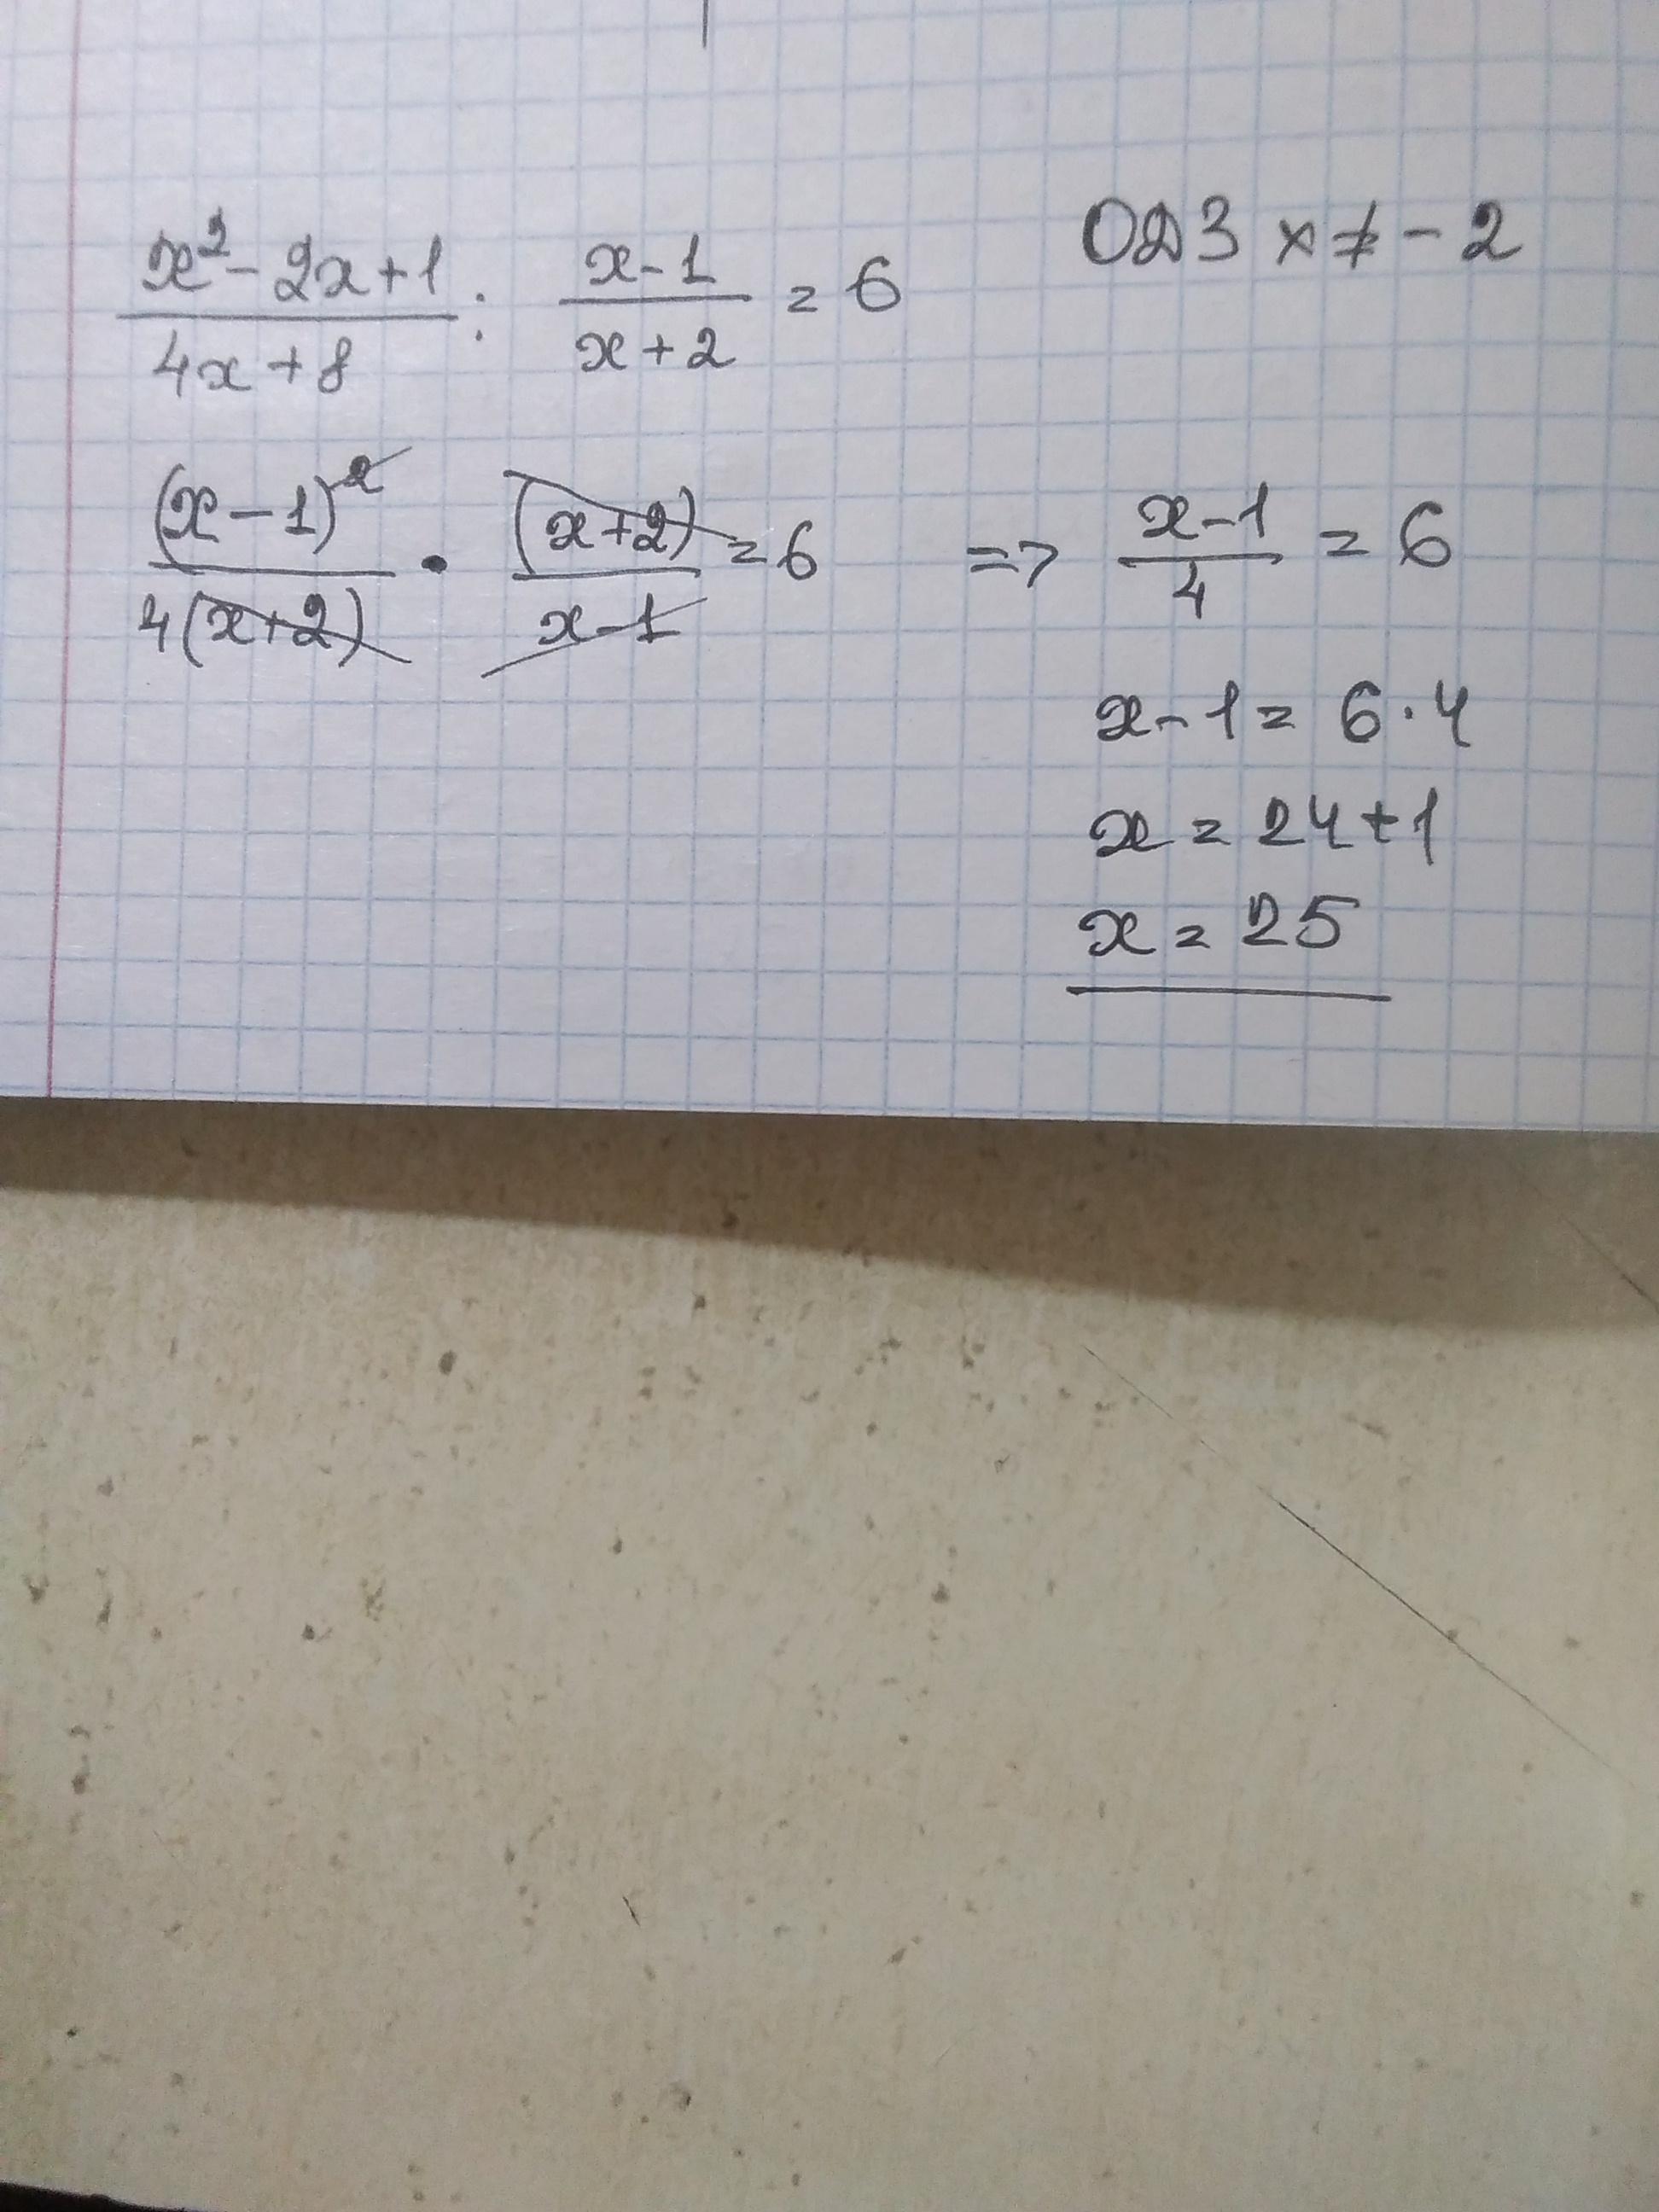 x² - 2x + 1 / 4x + 8 : x - 1 / x + 2 = 6
ОДЗ x ≠ - 2
(x - 1)² / 4(x + 2) · (x + 2) / x - 1 = 6 => x - 1 / 4 = 6
x - 1 = 6 · 4
x = 24 + 1
x = 25